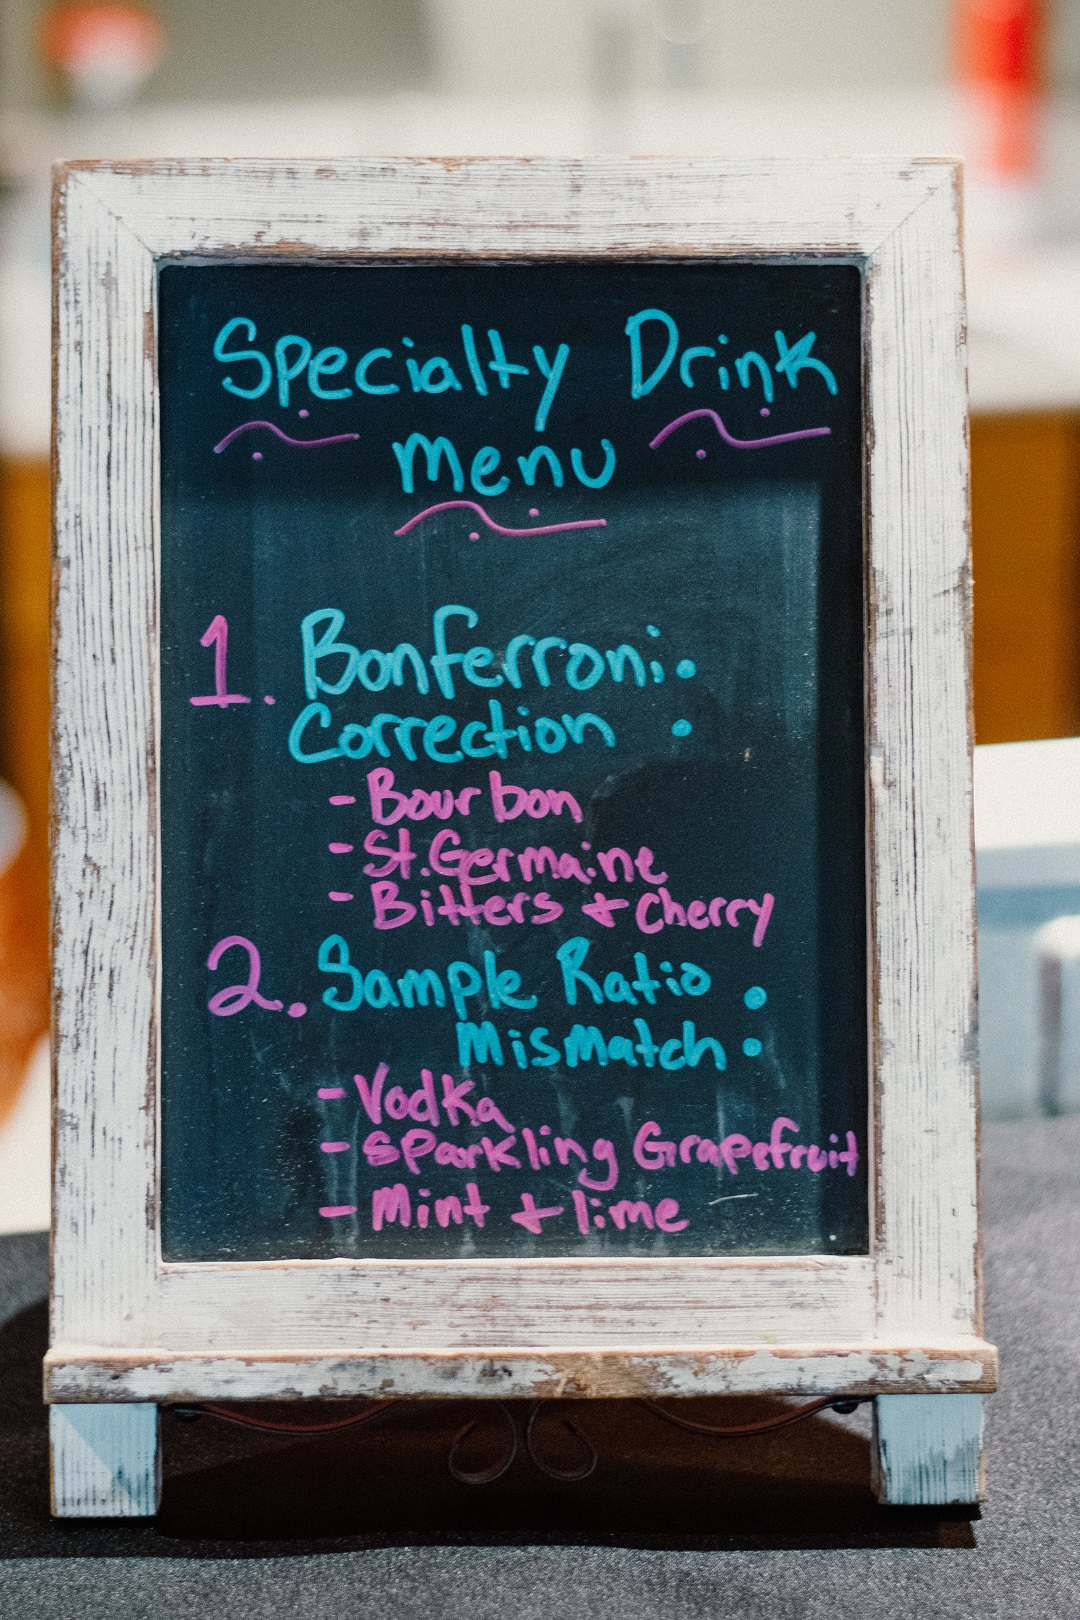 Specialty Drink
Menu
1. Bonferroni:
Correction :
- Bourbon
- St. Germaine
- Bitters + Cherry
2. Sample Ratio :
Mismatch :
- Vodka
- Sparkling Grapefruit
- Mint + lime